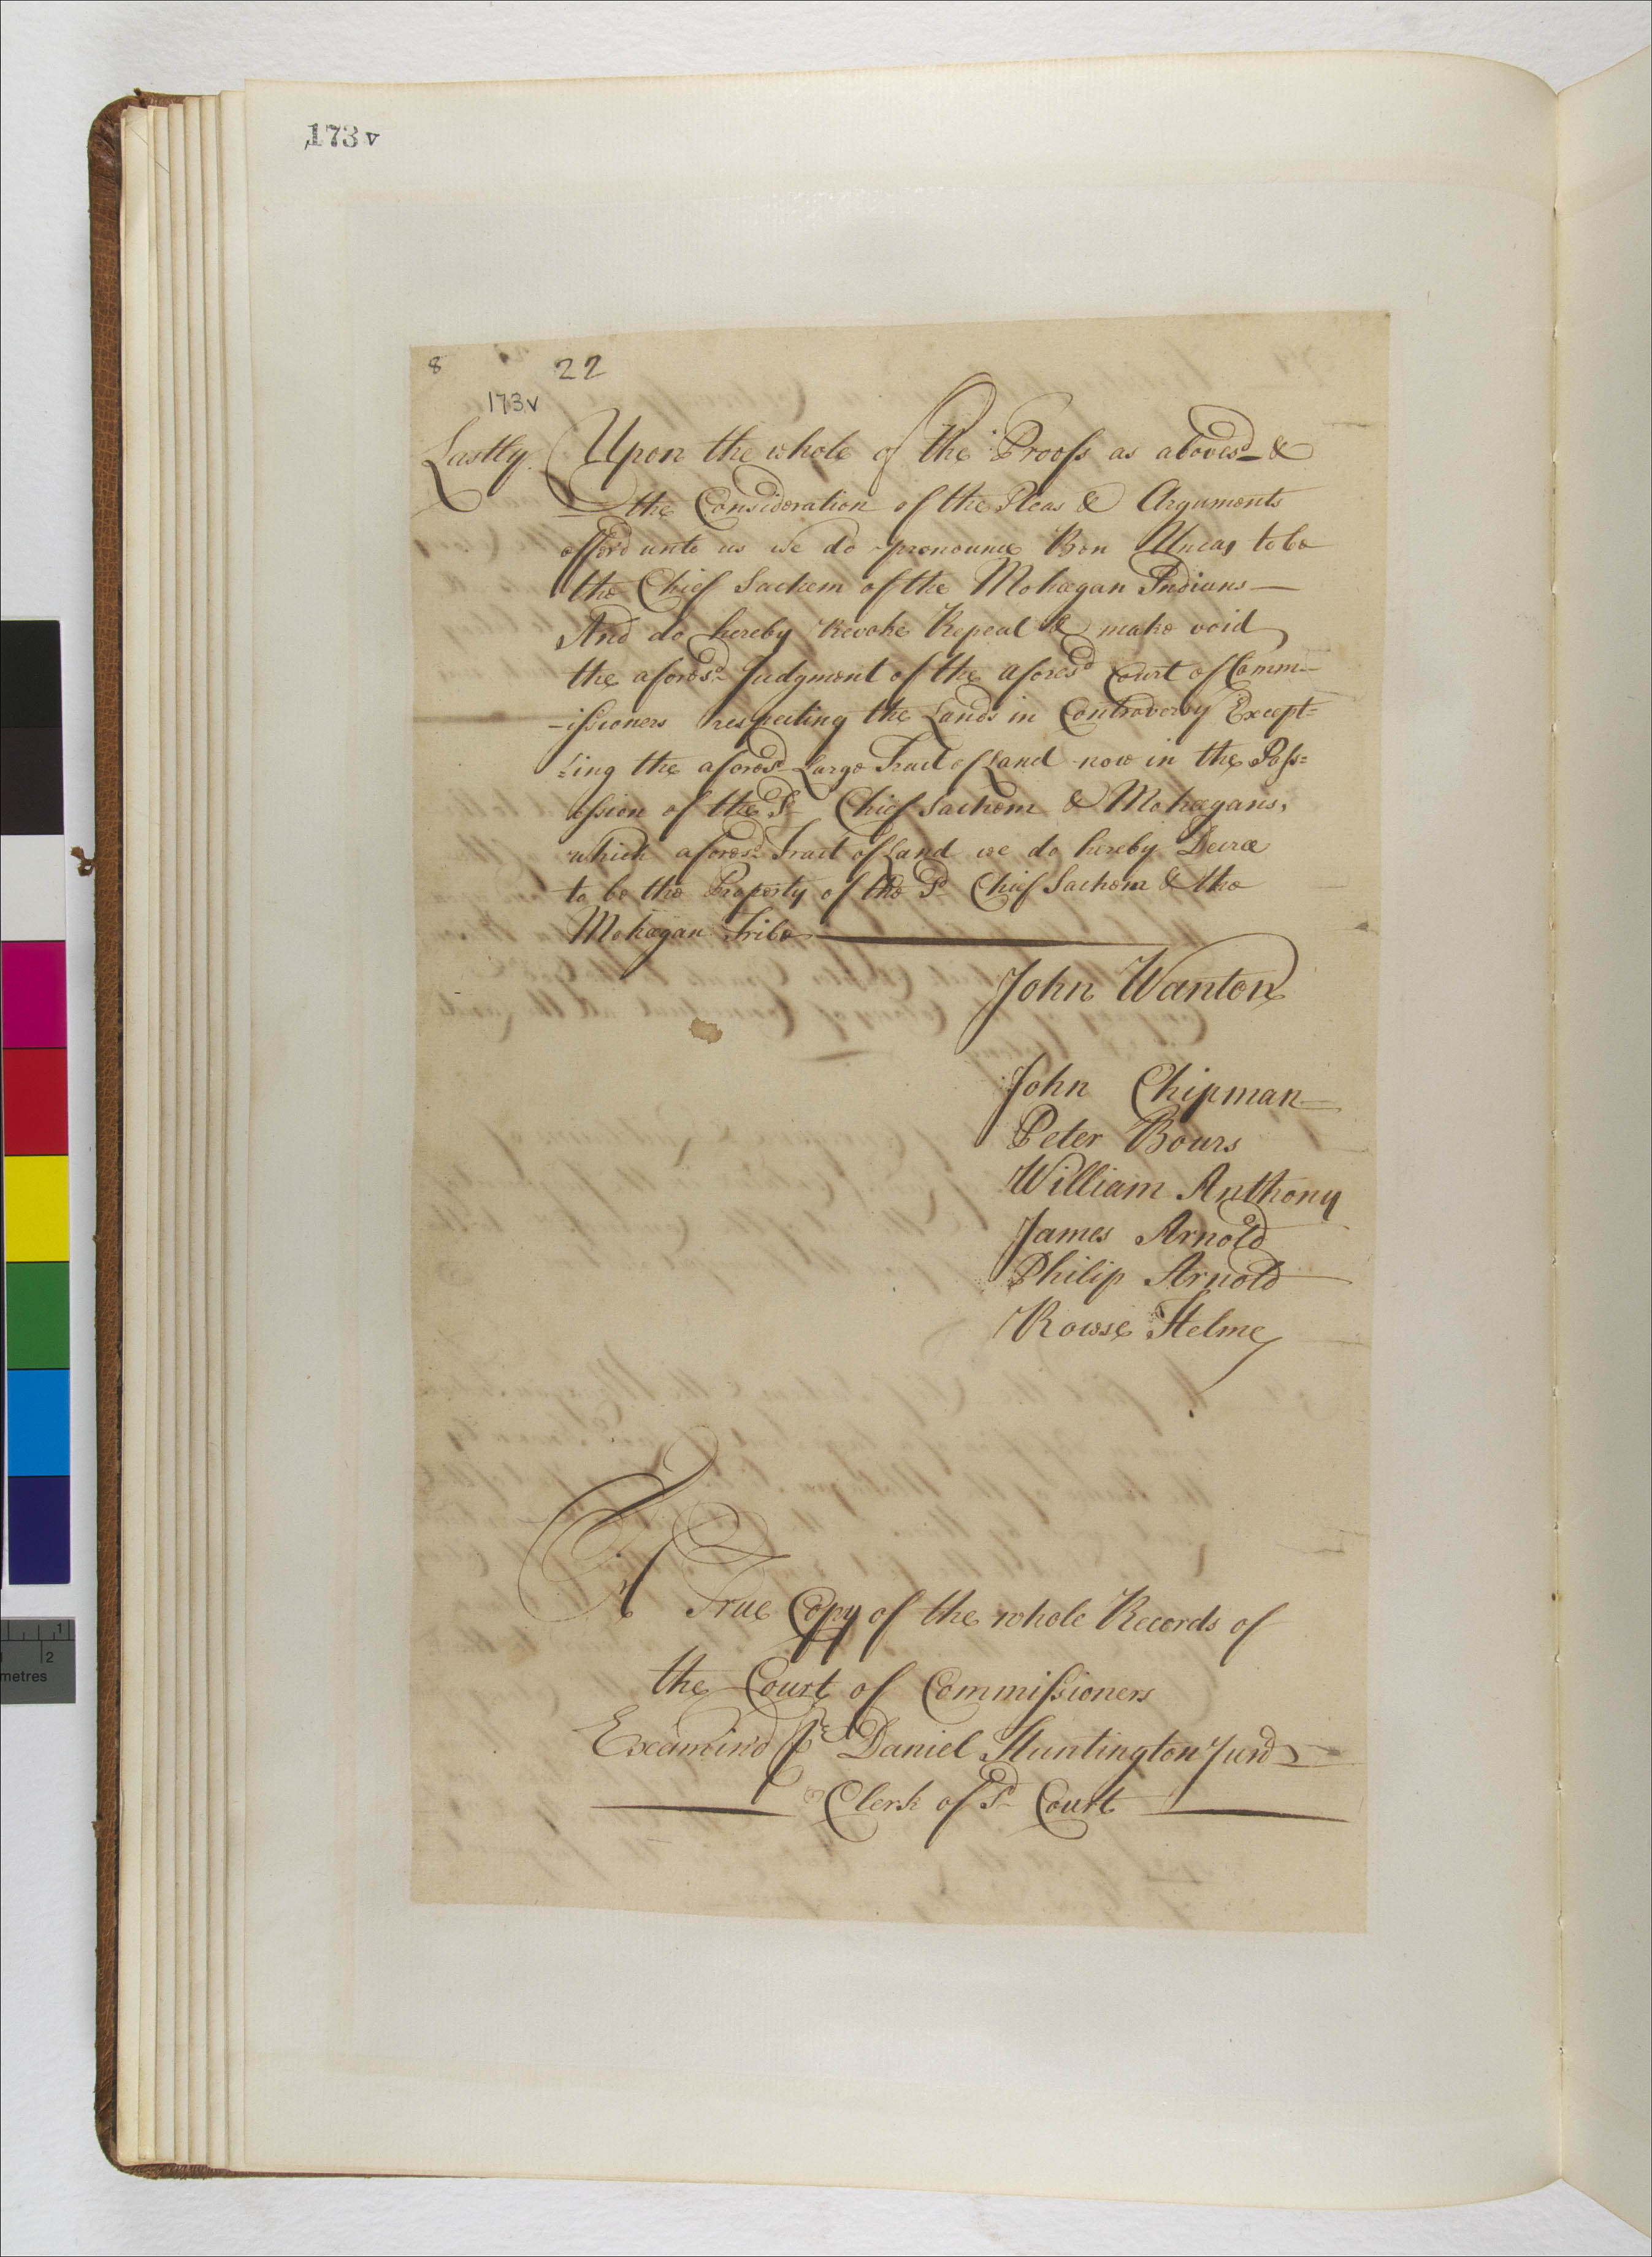 173v
8 22
173v
Lastly. Upon the whole of the Proofs as aboves.d &
the Consideration of the Pleas & Arguments
offerd unto us We do pronounce Ben Uncas to be
the Chief Sachem of the Mohegan Indians —
And do hereby Revoke Repeal & make void
the afores.d Judgment of the afores.d Court of Comm-
-issioners respecting the Lands in Controversy Except=
=ing the afores.d Large Tract of Land now in the Poss=
ession of the S.d Chief Sachem & Mohegans,
which afores.d Tract of Land we do hereby Decree
to be the Property of the S.d Chief Sachem & the
Mohegan Tribe
John Wanton
John Chipman
Peter Bours
William Anthony
James Arnold
Philip Arnold
Rowse Helme
A True Copy of the whole Records of
the Court of Commissioners
Examin'd Pr Daniel Huntington Jund
Clerk of S.d Court
1
2
metres